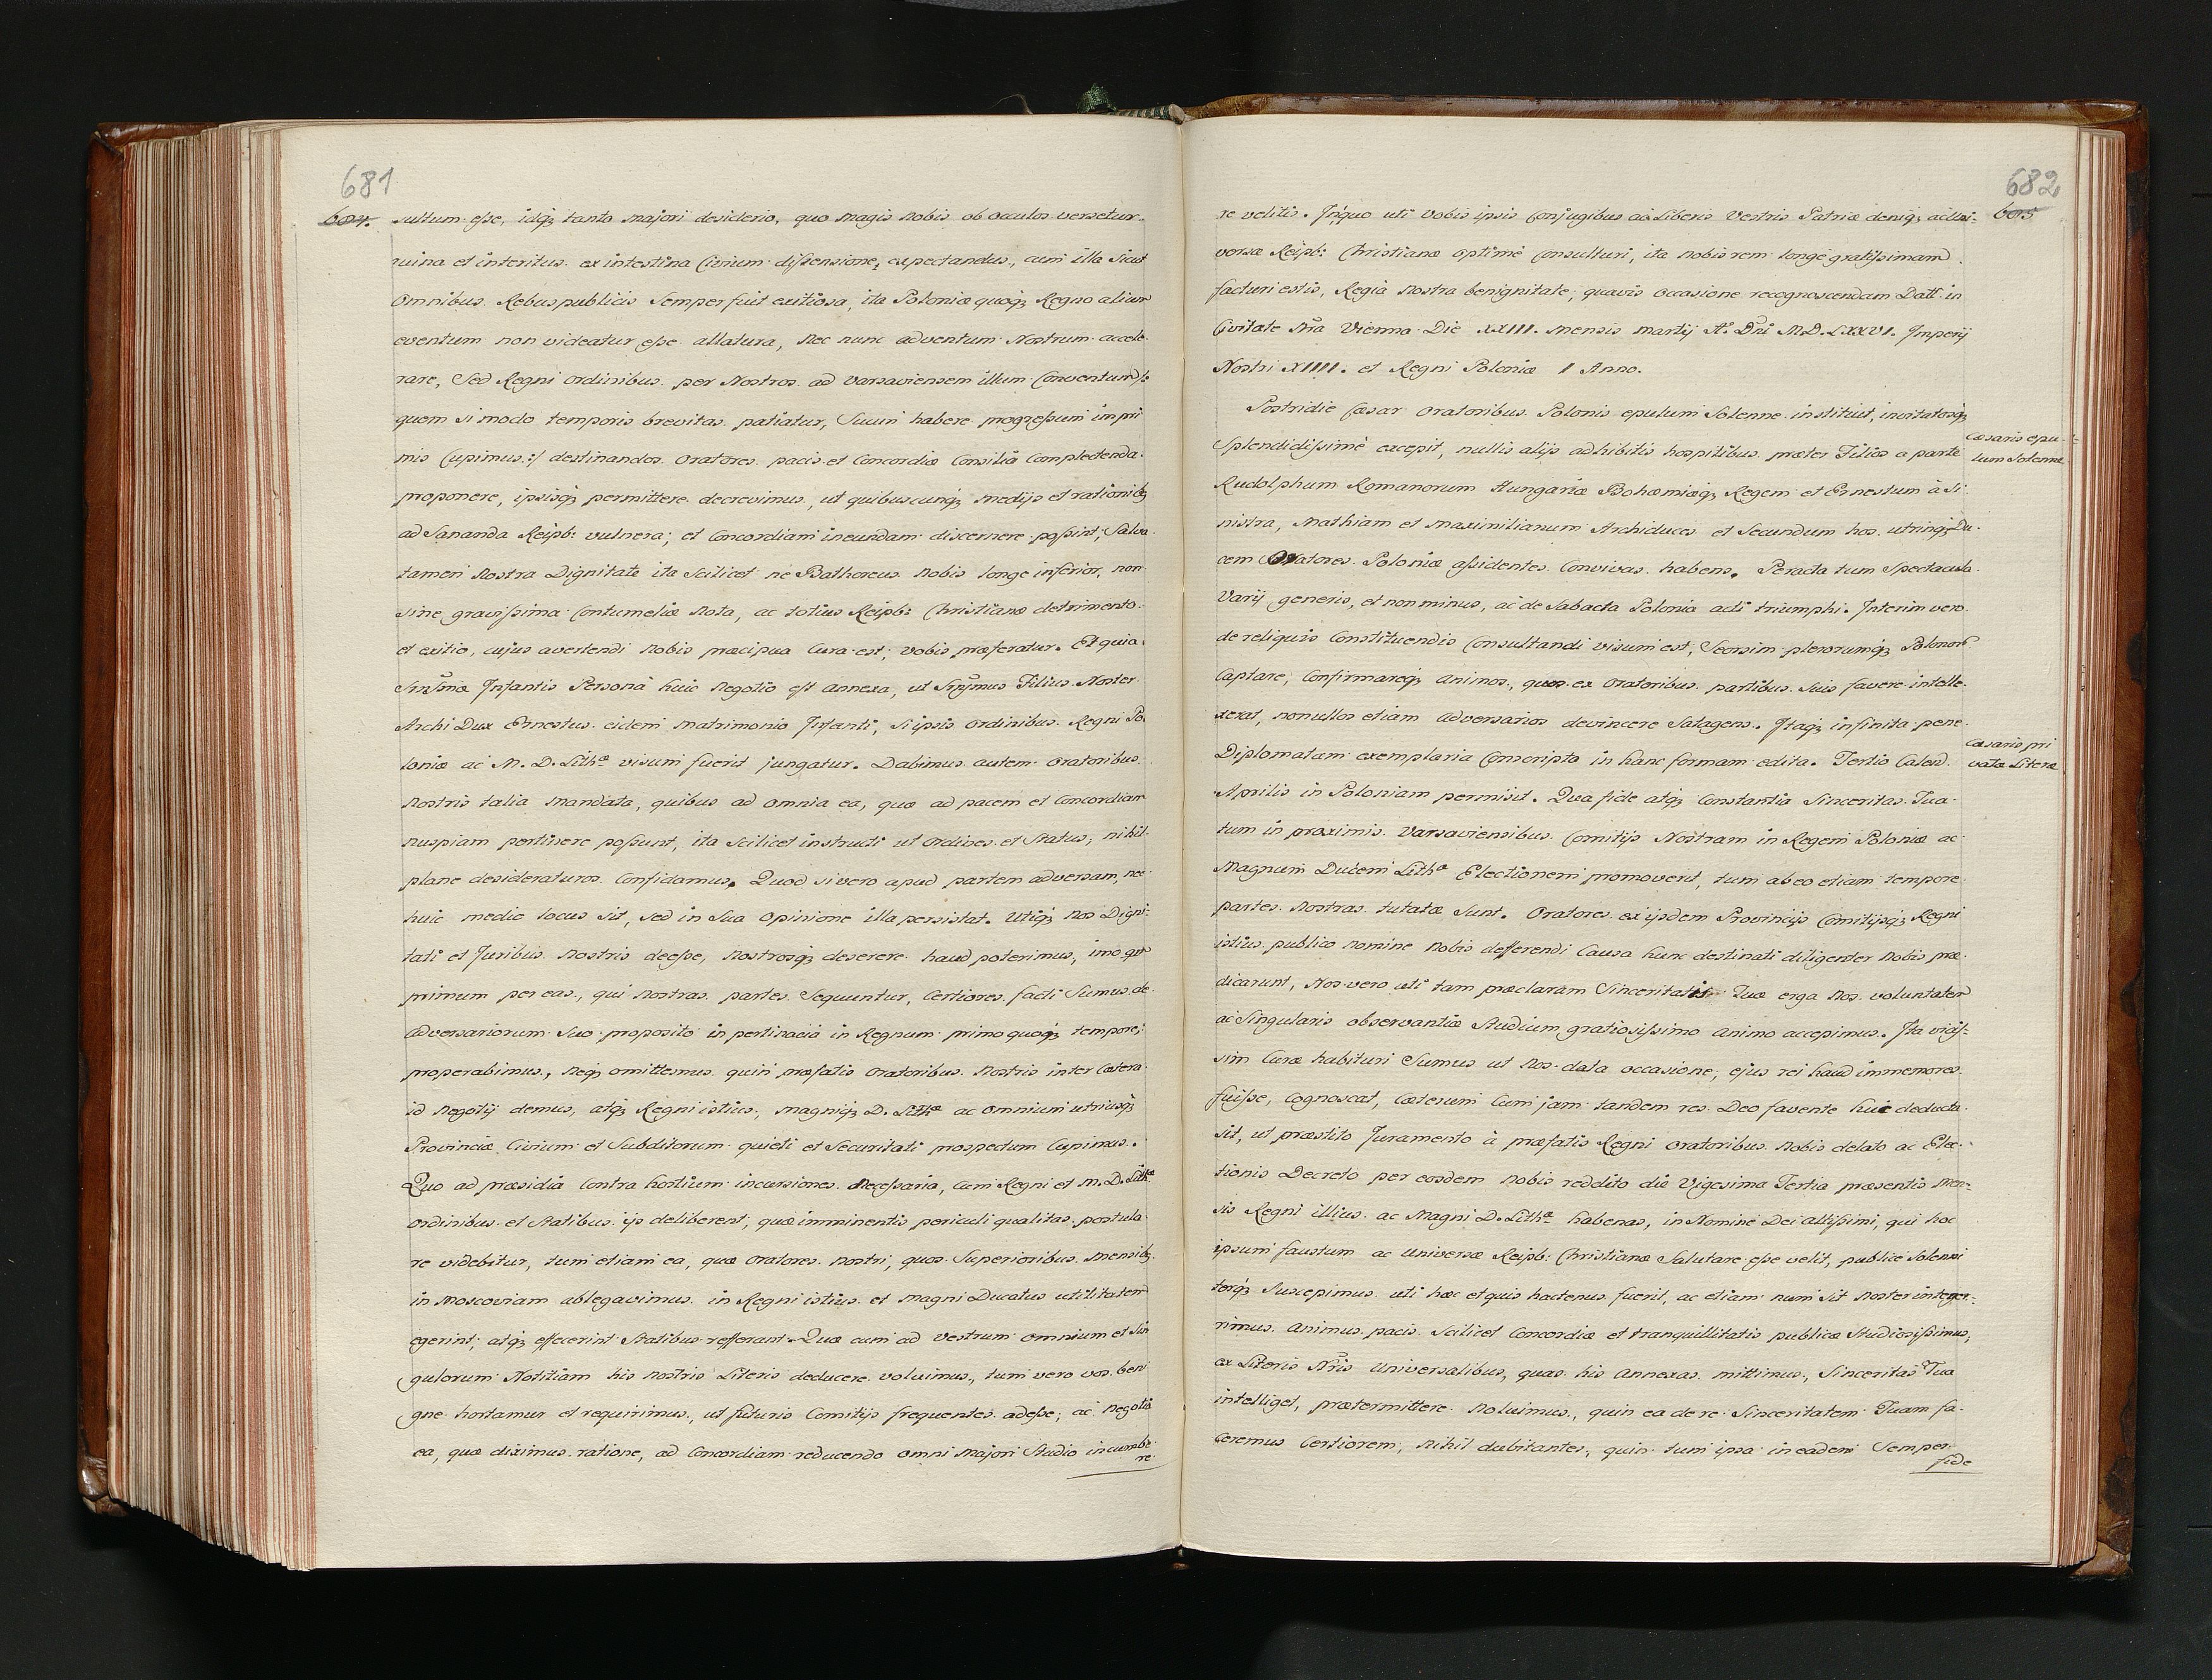 681
604.
sultum esse, idq3 tanto majori desiderio, quo magis nobis ob occulos versetur
ruina et interitus ex intestina Civium dissensione, expectandus, cum illa sicut
omnibus Rebuspublicis semper fuit exitiosa, ita Poloniæ quoq3 Regno alium
eventum non videatur esse allatura, nec nunc adventum Nostrum accele-
rare, sed Regni ordinibus per Nostros ad Varsaviensem illum Conventum /:
quem si modo temporis brevitas patiatur, suum habere progressum impri
mis cupimus :/ destinandos Oratores pacis et Concordiæ Consilia complectenda
proponere, ipsisq3 permittere decrevimus, ut quibuscunq3 medijs et rationib3
ad sananda Reipb: vulnera, et Concordiam ineundam discernere possint, salva
tamen nostra Dignitate ita scilicet ne Bathoreus nobis longe inferior, non
sine gravissima Contumeliæ nota, ac totius Reipb: Christianæ detrimento
et exitio, cujus avertendi nobis præcipua cura est, vobis præferatur. Et quia
Srnsmæ Infantis Persona huic negotio est annexa, ut Srnsmus Filius Noster
Archi Dux Ernestus eidem matrimonio Infanti, si ipsis ordinibus Regni Po
loniæ ac M. D. Lithæ visum fuerit jungatur. Dabimus autem Oratoribus
nostris talia mandata, quibus ad omnia ea, quæ ad pacem et Concordiam
nuspiam pertinere possunt, ita scilicet instructi ut Ordines et Status, nihil
plane desideraturos confidamus. Quod si vero apud partem adversam, nec
huic medio locus sit, sed in sua opinione illa persistat. Utiq3 nos Digni-
tati et Juribus nostris deesse, nostrosq3 deserere haud poterimus, imo
primum per eas, qui nostras partes sequuntur, certiores facti sumus de
adversariorum suo proposito in pertinacia in Regnum primo quoq3 tempore,
properabimus, neq3 omittemus quin præfatis Oratoribus nostris inter cætera
id negotij demus, atq3 Regni istius, magniq3 D. Lithæ ac omnium utriusq3
Provinciæ Civium et Subditorum quieti et securitati prospectum cupimus.
Quo ad præsidia contra hostium incursiones necessaria, cum Regni et M. D. Lithæ
ordinibus et statibus ijs deliberent, quæ imminentis periculi qualitas postula
re videbitur, tum etiam ea, quæ Oratores nostri, quos superioribus mensib3
in Moscoviam ablegavimus in Regni istius et Magni Ducatus utilitatem
egerint, atq3 effecerint statibus refferant. Quæ cum ad vestrum omnium et sin
gulorum Notitiam his nostris Literis deducere voluimus, tum vero vos beni
gne hortamur et requirimus, ut futuris Comitijs frequentes adesse, ac negotia
ea, quæ diximus ratione, ad Concordiam reducendo omni majori studio incumbe
re
682
605
re velitis. Inquo uti vobis ipsis Conjugibus ac Liberis vestris Patriæ deniq3 ac Uni-
versæ Reipb: Christianæ optimè consulturi, ita nobis rem longè gratissimam
facturi estis, Regia nostra benignitate, quavis occasione recognoscendam Datt. in
Civitate Nra Vienna Die XXIII. mensis martij Ao. Dni M.D.LXXVI. Imperij
Nostri XIIII. et Regni Poloniæ I Anno.
Postridie Cæsar Oratoribus Polonis epulum solenne instituit, invitatosq3
Cæsaris epu-
lum solenne
splendidissimè excepit, nullis alijs adhibitis hospitibus præter Filios a parte
Rudolphum Romanorum Hungariæ Bohæmiæq3 Regem et Ernestum à si
nistra, Mathiam et Maximilianum Archiduces et secundum hos utrinq3 Du-
cem Oratores Poloniæ assidentes Convivas habens. Peracta tum spectacula
varij generis, et non minus, ac de subacta Polonia acti triumphi. Interim vero
de reliquis constituendis consultandi visum est, seorsim plerorumq3 Polonorum
captare, confirmareq3 animos, quos ex Oratoribus partibus suis favere intelle-
xerat, nonullos etiam adversarios devincere satagens. Itaq3 infinita pene
Cæsaris pri
vatæ Literæ
Diplomatam exemplaria conscripta in hanc formam edita. Tertio Calend.
Aprilis in Poloniam permisit. Qua fide atq3 constantia Sinceritas Tua
tum in proximis Varsaviensibus Comitijs Nostram in Regem Poloniæ ac
Magnum Ducem Lithæ Electionem promoverit, tum ab eo etiam tempore
partes nostras tutatæ sunt. Oratores ex ijsdem Provincijs Comitijsq3 Regni
istius publico nomine nobis defferendi causa hunc destinati diligenter nobis præ-
dicarunt, Nos vero uti tam præclaram Sinceritatis Tuæ erga nos voluntatem
ac singularis observantiæ studium gratiosissimo animo accepimus. Ita vicis-
sim curæ habituri sumus ut nos data occasione, ejus rei haud immemores
fuisse, cognoscat, cæterum cum jam tandem res Deo favente huic deducta
sit, ut præstito Juramento à præfatis Regni Oratoribus nobis delato ac Elec-
tionis Decreto per eosdem nobis reddito die Vigesima Tertia præsentis men-
sis Regni illius ac Magni D. Lithæ habenas, in Nomine Dei altissimi, qui hoc
ipsum faustum ac universæ Reipb: Christianæ salutare esse velit, publice solenni
terq3 suscepimus uti hoc et quis hactenus fuerit, ac etiam num sit noster integer-
rimus animus pacis scilicet concordiæ et tranquillitatis publicæ studiosissimus,
ex Literis Nris Universalibus, quas his annexas mittimus, Sinceritas Tua
intelliget, prætermittere noluimus, quin ea de re Sinceritatem Tuam fa-
ceremus certiorem, nihil dubitantes, quin tum ipsa in eadem semper
fide